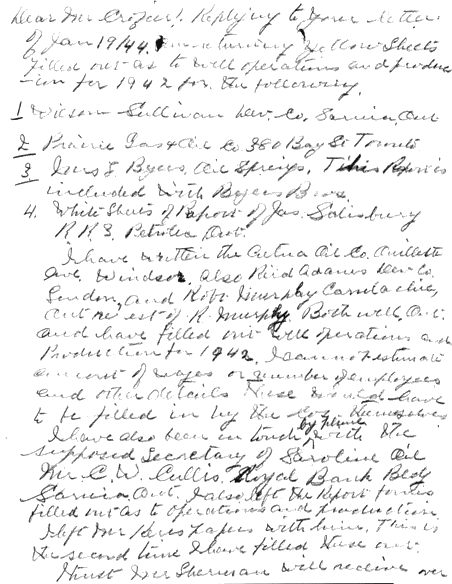 Dear Mr Crozier! Replying to your letter
of Jan 19/44. returning yellow sheets
filled out as to well operations and produc
-tion for 1942 for the following.
1 Wilson Sullivan Dev. Co. Sarnia, Ont
2 Prairie Gas & Oil Co 380 Bay St Toronto
3 Byers, Oil Springs, This Report is
included with Byers Bros.
4. White Sheets of Report of Jas. Salisbury
R.R.3. Petrolia, Ont.
I have written the Aetna Oil Co. Ouillette
Ave. Windsor, also Adams Dev. Co.
London, and Robt Murphy
Ont est of R. Murphy Bothwell, Ont.
and have filled out well operations and
Production for 1942, I cannot estimate
amount of wages or number of employees
and other details these would have
to be filled in by the themselves
I have also been in touch by phone with the
supposed Secretary of Saroline Oil
Mr. C. W. Cullis, Royal Bank Bldg
Sarnia, Ont. I also left the Report forms
filled out as to operations and production
I left papers with him. This is
the second time I have filled these out.
I trust Mr Sherman will receive